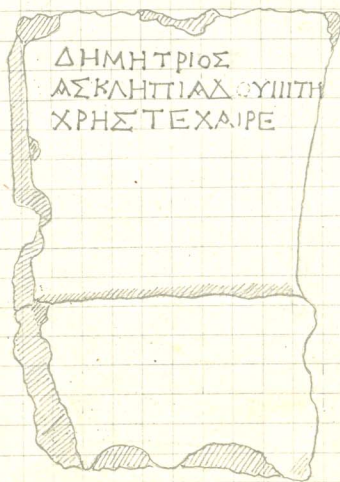 ΔΗΜΗΤΡΙΟΣ
ΑΣΚΛΗΠΙΑΔΟΥΙΙΙΤΗ
ΧΡΗΣΤΕΧΑΙΡΕ